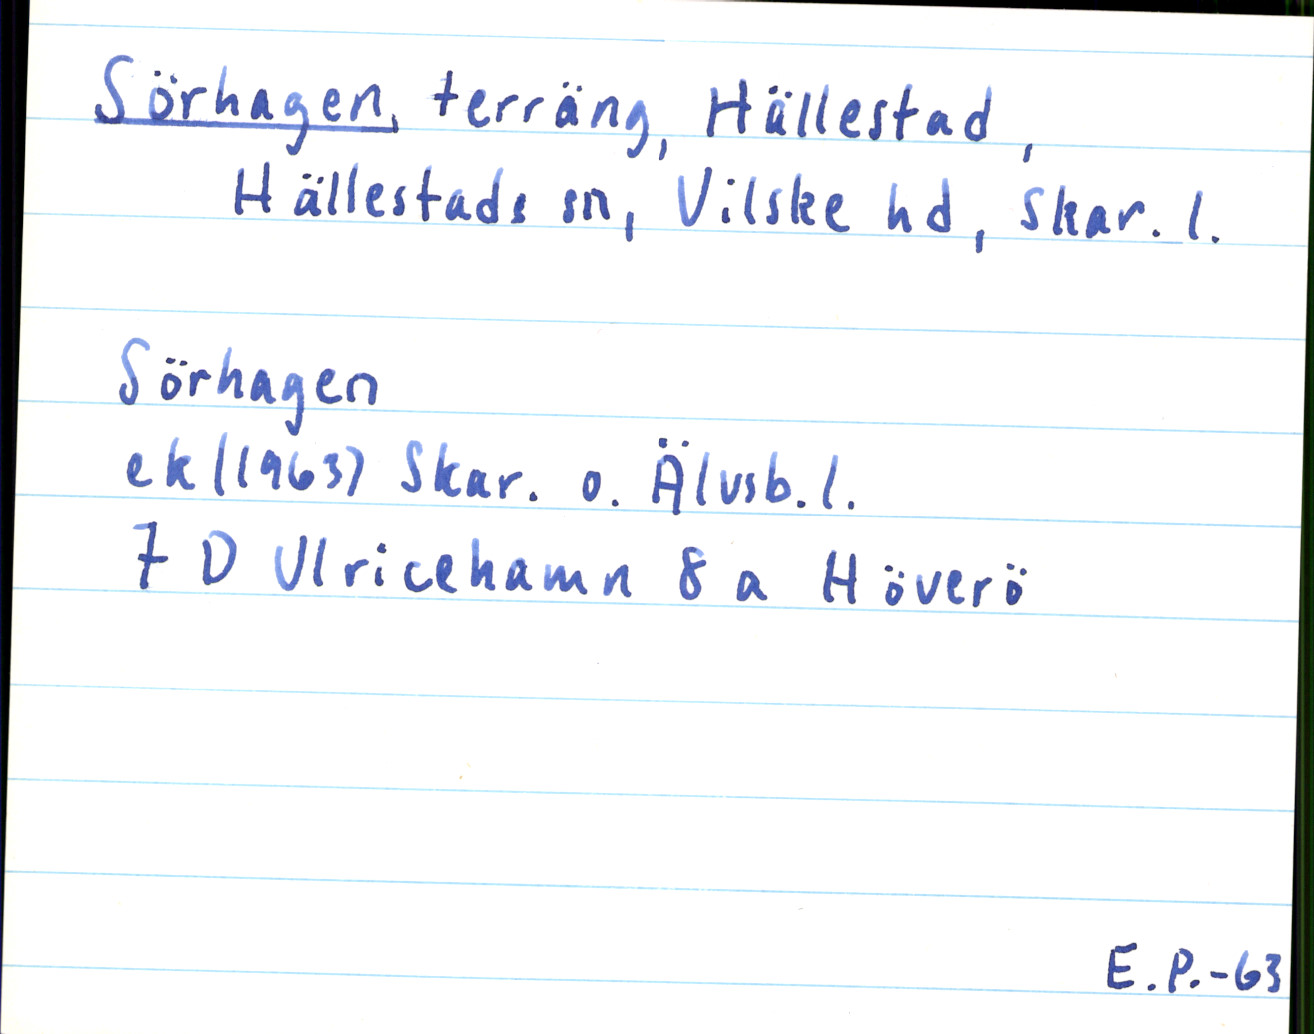 Sörhagen, terräng, Hällestad,
Hällestads sn, Vilske hd, Skar. l.
Sörhagen
ek (1963) Skar. o. Älvsb. l.
7 D Ulricehamn 8 a Höverö
E.P.-63